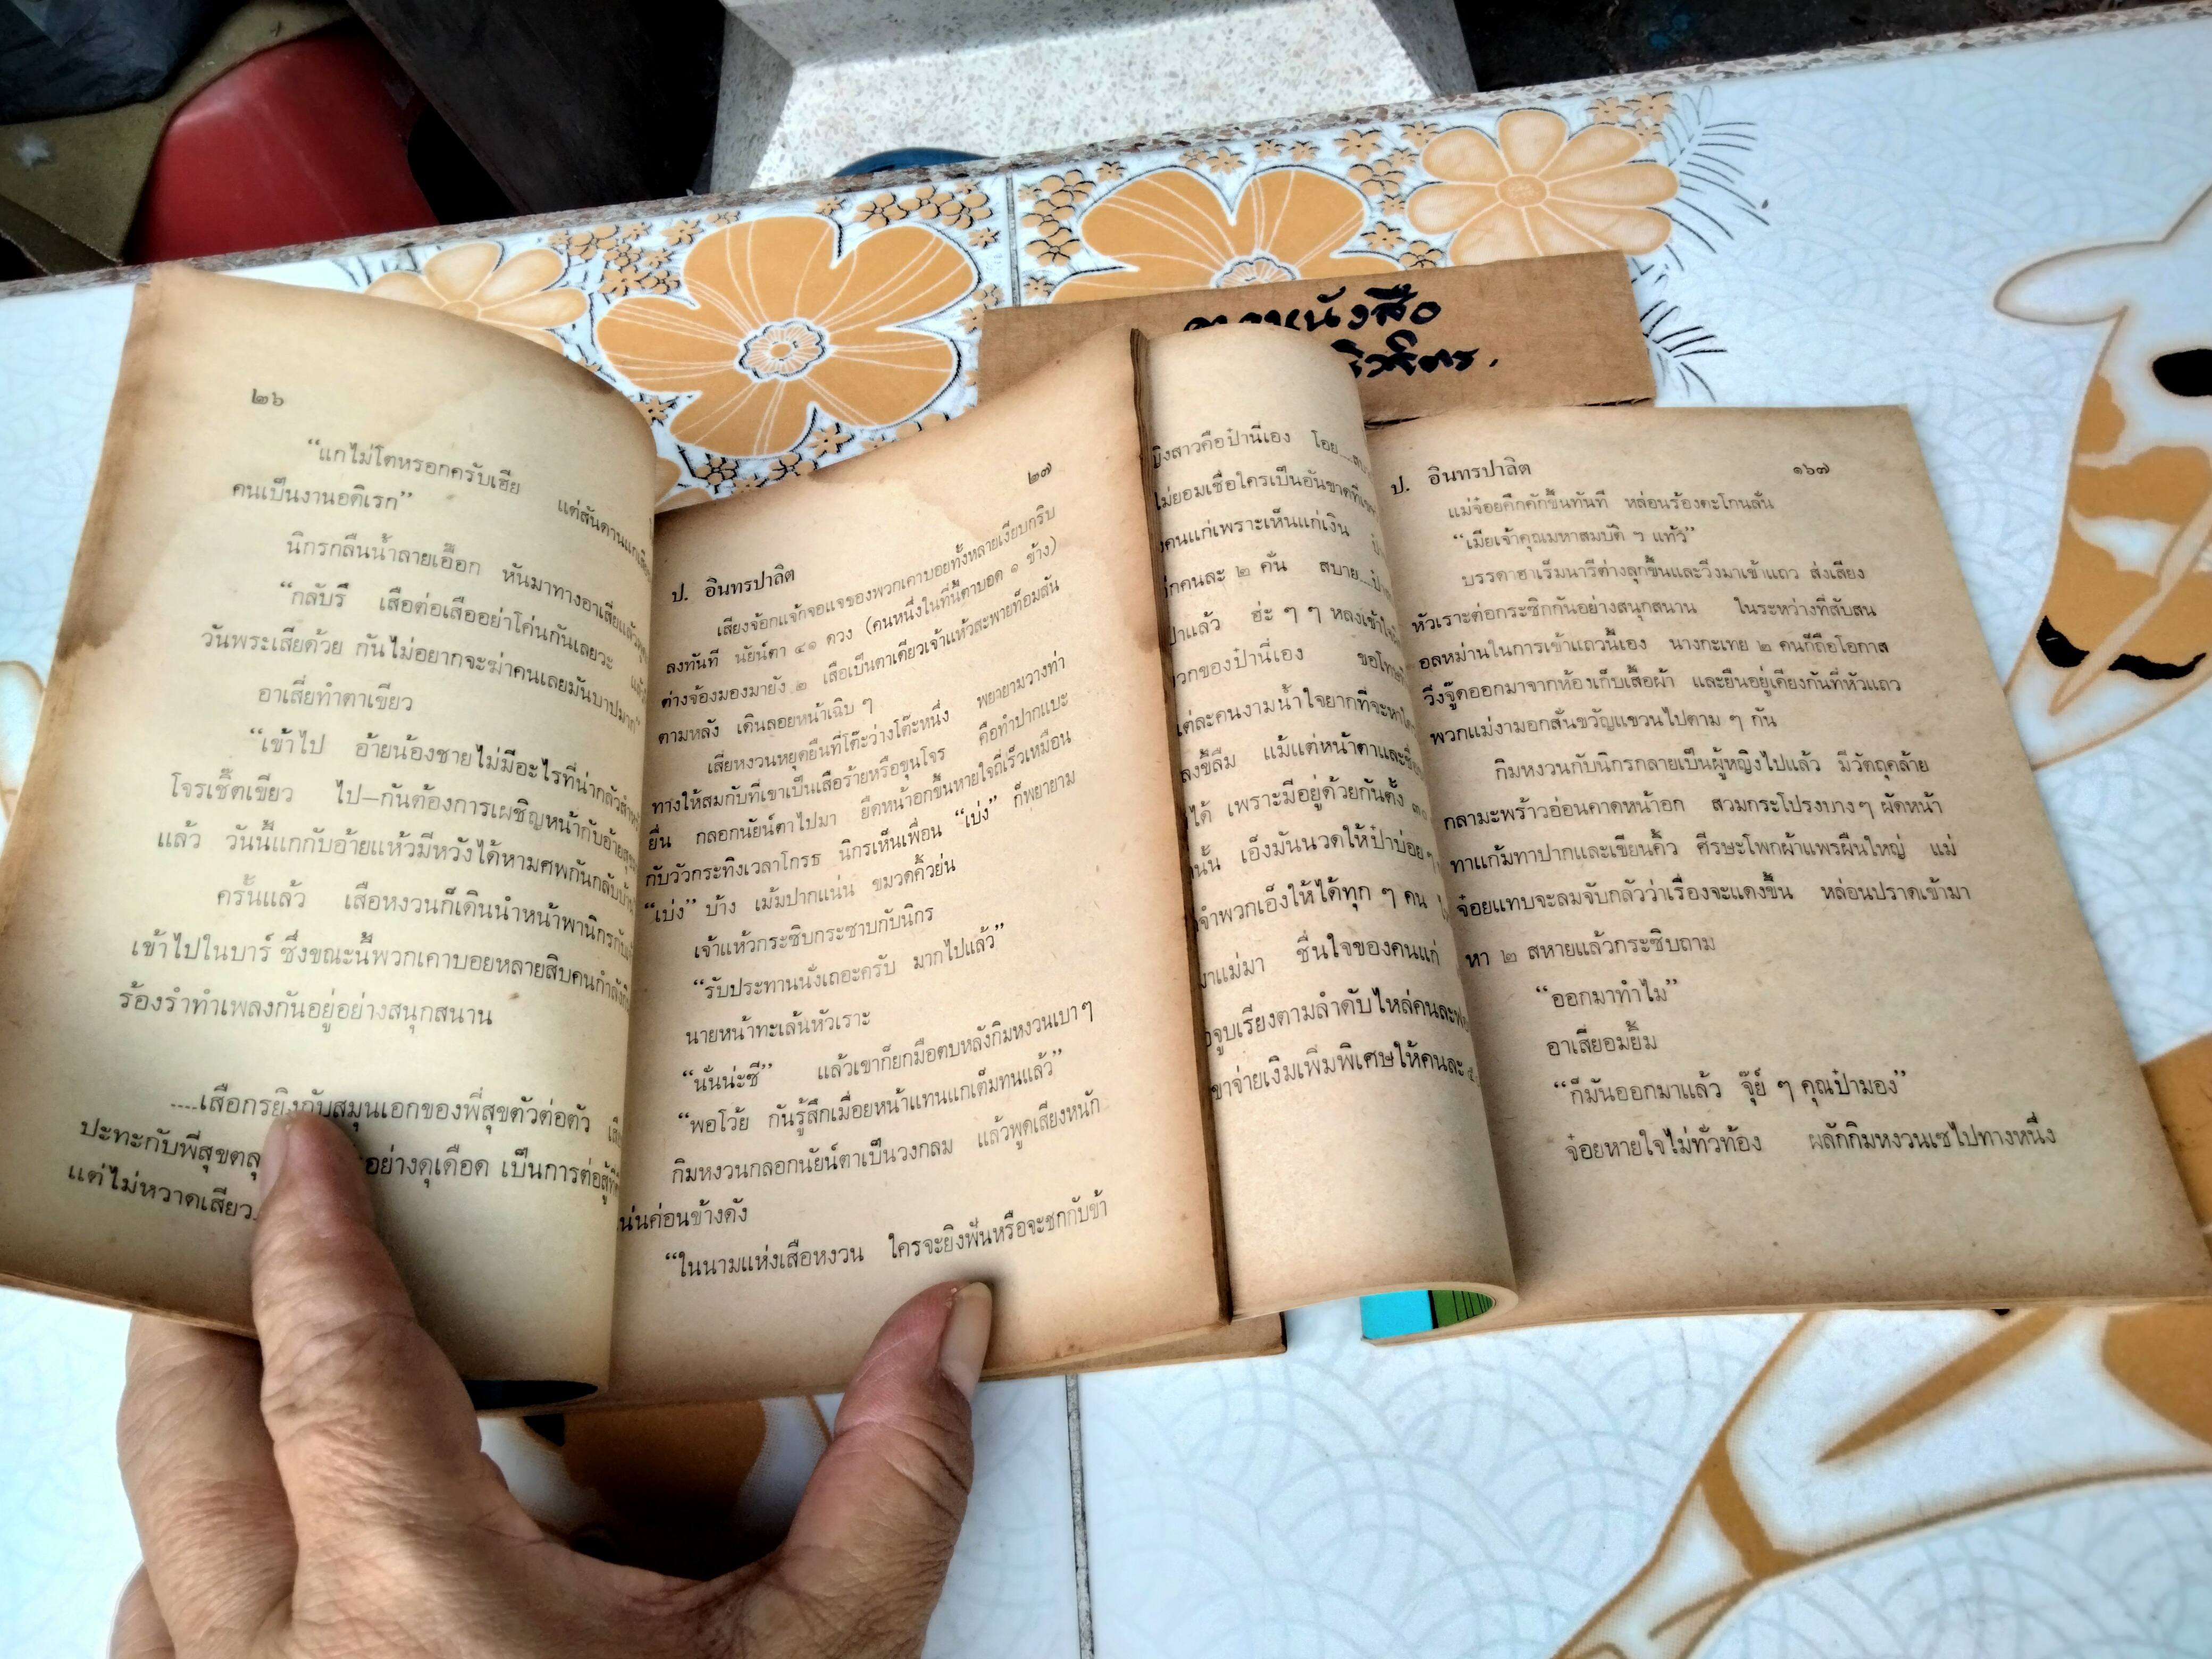 หนังสือ
๒๖
“แกไม่โตหรอกครับเฮีย แต่สันดานแก
คนเป็นงานอดิเรก”
นิกรกลืนน้ำลายเอื๊อก หันมาทางอาเสี่ยแล้ว
“กลับรึ เสือต่อเสืออย่าโค่นกันเลยวะ
วันพระเสียด้วย กันไม่อยากจะฆ่าคนเลยมันบาปมาก”
อาเสี่ยทำตาเขียว
“เข้าไป อ้ายน้องชายไม่มีอะไรที่น่ากลัว
โจรเชิ๊ตเขียว ไป–กันต้องการเผชิญหน้ากับอ้าย
แล้ว วันนี้แกกับอ้ายแห้วมีหวังได้หามศพกันกลับบ้าน
ครั้นแล้ว เสือหงวนก็เดินนำหน้าพานิกรกับ
เข้าไปในบาร์ ซึ่งขณะนี้พวกเคาบอยหลายสิบคนกำลัง
ร้องรำทำเพลงกันอยู่อย่างสนุกสนาน
....เสือกรยิงกับสมุนเอกของพี่สุขตัวต่อตัว
ปะทะกับพี่สุขตลุ อย่างดุเดือด เป็นการต่อสู้
แต่ไม่หวาดเสียว
ป. อินทรปาลิต ๒๗
เสียงจ้อกแจ้กจอแจของพวกเคาบอยทั้งหลายเงียบกริบ
ลงทันที นัยน์ตา ๔๑ ดวง (คนหนึ่งในที่นี้ตาบอด ๑ ข้าง)
ต่างจ้องมองมายัง ๒ เสือเป็นตาเดียวเจ้าแห้วสะพายท็อมสัน
ตามหลัง เดินลอยหน้าเฉิบ ๆ
เสี่ยหงวนหยุดยืนที่โต๊ะว่างโต๊ะหนึ่ง พยายามวางท่า
ทางให้สมกับที่เขาเป็นเสือร้ายหรือขุนโจร คือทำปากแบะ
ยื่น กลอกนัยน์ตาไปมา ยืดหน้าอกขึ้นหายใจถี่เร็วเหมือน
กับวัวกระทิงเวลาโกรธ นิกรเห็นเพื่อน “เบ่ง” ก็พยายาม
“เบ่ง” บ้าง เม้มปากแน่น ขมวดคิ้วย่น
เจ้าแห้วกระซิบกระซาบกับนิกร
“รับประทานนั่งเถอะครับ มากไปแล้ว”
นายหน้าทะเล้นหัวเราะ
“นั่นน่ะซี” แล้วเขาก็ยกมือตบหลังกิมหงวนเบาๆ
“พอโว้ย กันรู้สึกเมื่อยหน้าแทนแกเต็มทนแล้ว”
กิมหงวนกลอกนัยน์ตาเป็นวงกลม แล้วพูดเสียงหนัก
แน่นค่อนข้างดัง
“ในนามแห่งเสือหงวน ใครจะยิงฟันหรือจะชกกับข้า
ญิงสาวคือป๋านี่เอง โอย
ไม่ยอมเชื่อใครเป็นอันขาด
คนแก่เพราะเห็นแก่เงิน
คนละ ๒ คั่น สบาย
ป๋าแล้ว ฮ่ะ ๆ ๆ หลงเข้าใจ
พวกของป๋านี่เอง ขอโทษ
แต่ละคนงามน้ำใจยากที่จะหา
ลงขี้ลืม แม้แต่หน้าตาและชื่อ
ได้ เพราะมีอยู่ด้วยกันตั้ง
นั้น เอ็งมันนวดให้ป๋าบ่อยๆ
จำพวกเอ็งให้ได้ทุก ๆ คน
มาแม่มา ชื่นใจของคนแก่
จูบเรียงตามลำดับไหล่คนละ
เขาจ่ายเงินเพิ่มพิเศษให้คนละ
ป. อินทรปาลิต ๑๖๗
แม่จ๋อยคึกคักขึ้นทันที หล่อนร้องตะโกนลั่น
“เมียเจ้าคุณมหาสมบัติ ฯ แท้ว”
บรรดาฮาเร็มนารีต่างลุกขึ้นและวิ่งมาเข้าแถว ส่งเสียง
หัวเราะต่อกระซิกกันอย่างสนุกสนาน ในระหว่างที่สับสน
อลหม่านในการเข้าแถวนี้เอง นางกะเทย ๒ คนก็ถือโอกาส
วิ่งจู๊ดออกมาจากห้องเก็บเสื้อผ้า และยืนอยู่เคียงกันที่หัวแถว
พวกแม่งามอกสั่นขวัญแขวนไปตาม ๆ กัน
กิมหงวนกับนิกรกลายเป็นผู้หญิงไปแล้ว มีวัตถุคล้าย
กลามะพร้าวอ่อนคาดหน้าอก สวมกระโปรงบางๆ ผัดหน้า
ทาแก้มทาปากและเขียนคิ้ว ศีรษะโพกผ้าแพรผืนใหญ่ แม่
จ๋อยแทบจะลมจับกลัวว่าเรื่องจะแดงขึ้น หล่อนปราดเข้ามา
หา ๒ สหายแล้วกระซิบถาม
“ออกมาทำไม”
อาเสี่ยอมยิ้ม
“ก็มันออกมาแล้ว จุ๊ย์ ๆ คุณป๋ามอง”
จ๋อยหายใจไม่ทั่วท้อง ผลักกิมหงวนเซไปทางหนึ่ง